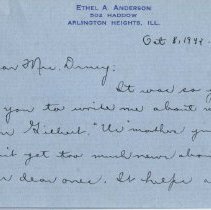 ETHEL A. ANDERSON
502 HADDOW
ARLINGTON HEIGHTS, ILL.
Oct 8, 1944
ar Mrs. Diney:
It was so
you to write me about
n Gilbert. "Us" mother
it get too much news abou
r dear ones. It helps a